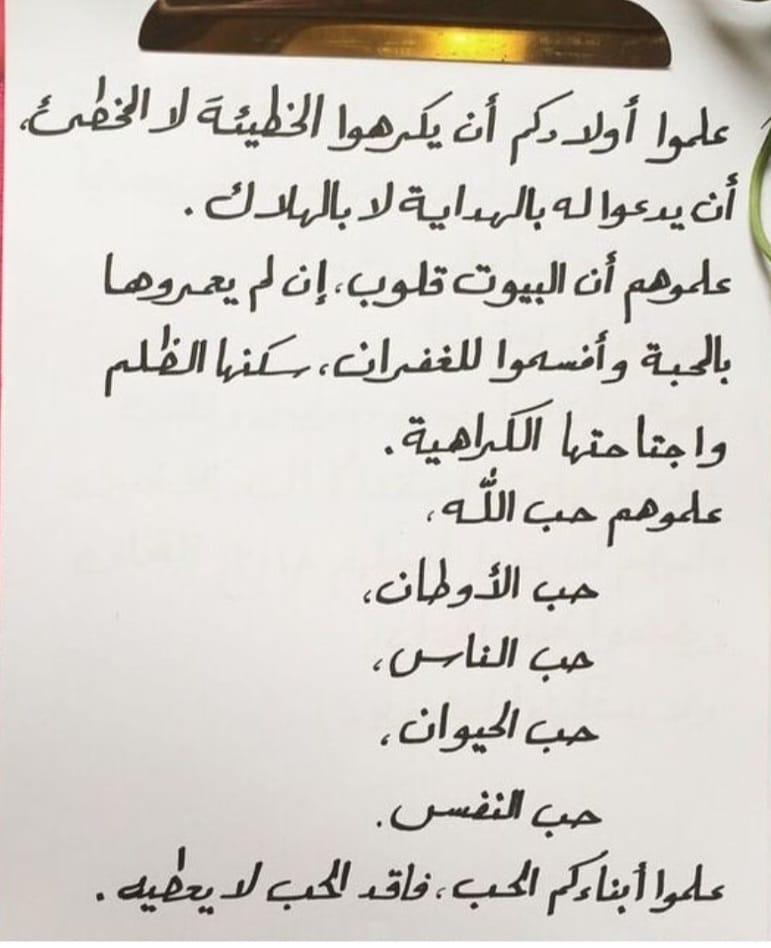 علموا أولادكم أن يكرهوا الخطيئةَ لا الخطئ،
أن يدعوا له بالهداية لا بالهلاك.
علموهم أن البيوت قلوب، إن لم يعمروها
بالمحبة وأفسحوا للغفران، سكنها الظلم
واجتاحتها الكراهية.
علموهم حب اللّه،
حب الأوطان،
حب الناس،
حب الحيوان،
حب النفس.
علموا أبناءكم الحب، فاقد الحب لا يعطيه.